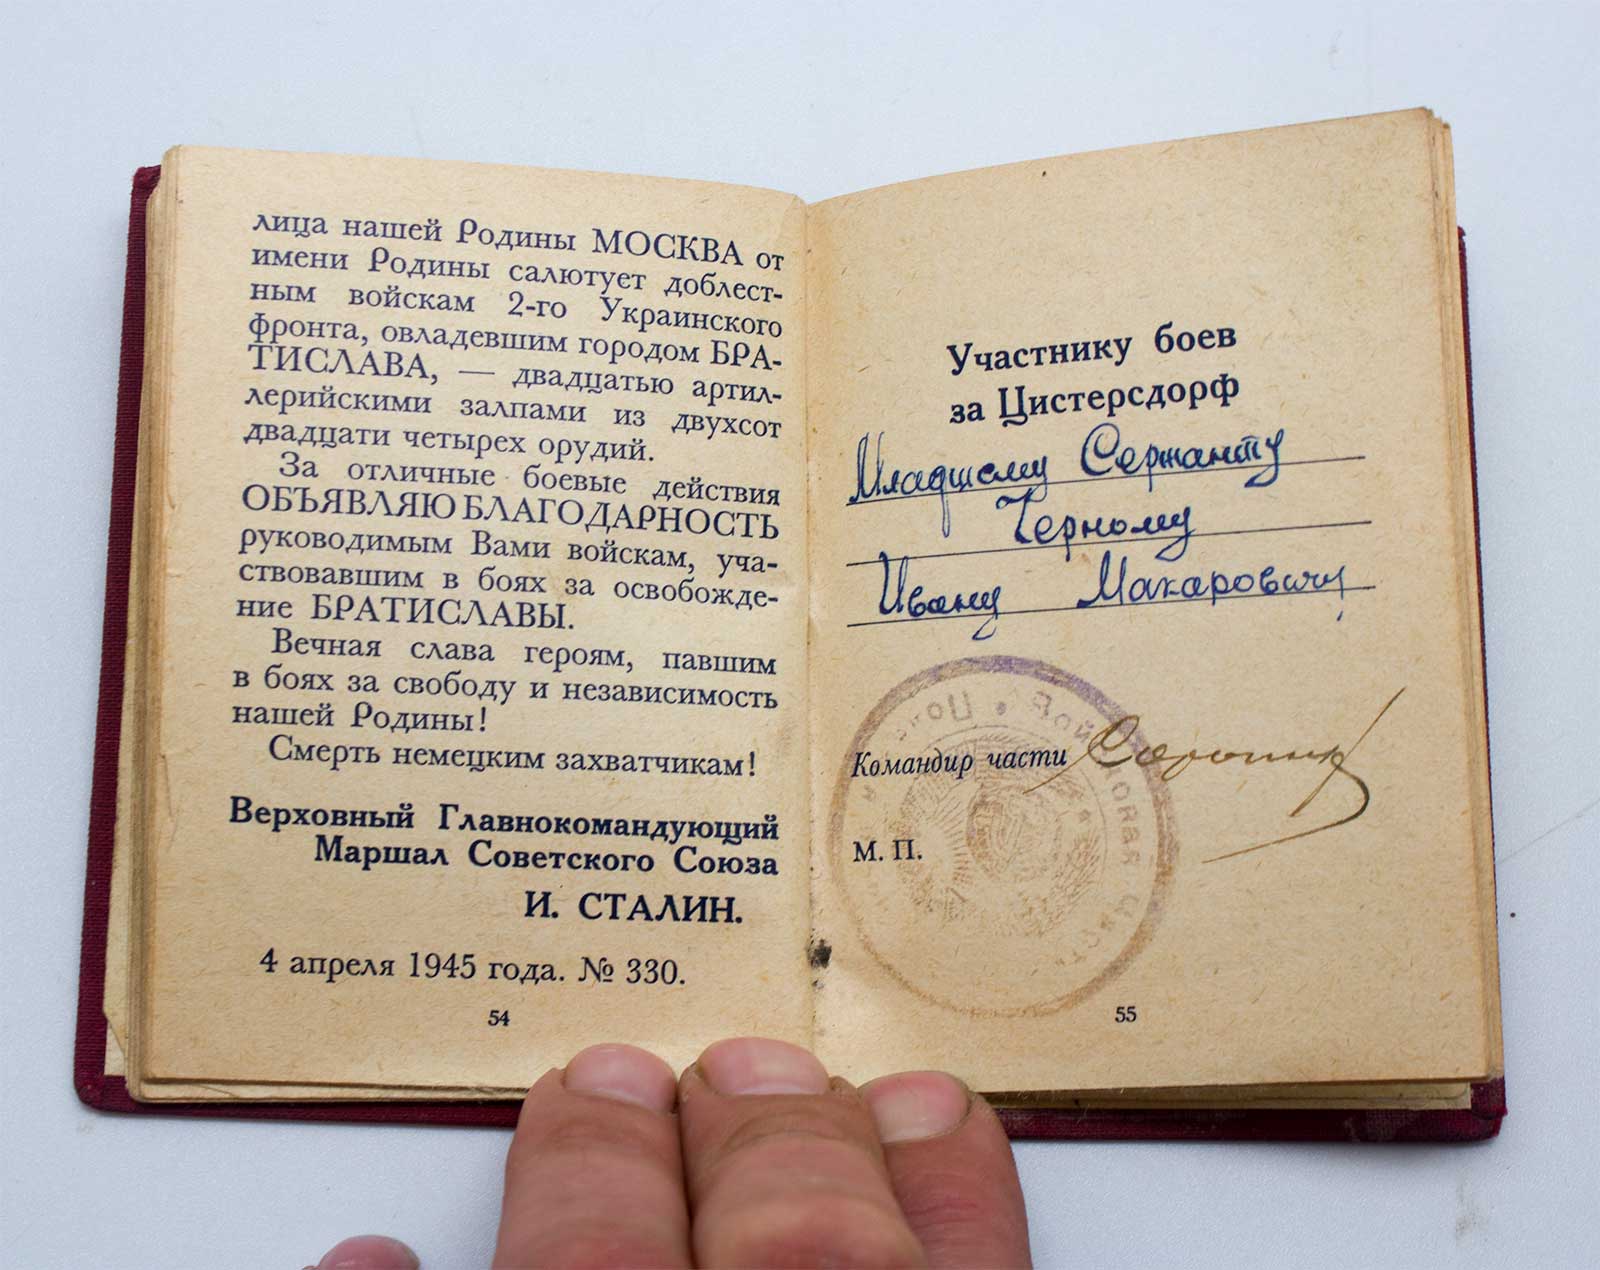 лица нашей Родины МОСКВА от
имени Родины салютует доблест-
ным войскам 2-го Украинского
фронта, овладевшим городом БРА-
ТИСЛАВА, — двадцатью артил-
лерийскими залпами из двухсот
двадцати четырех орудий.
За отличные боевые действия
ОБЪЯВЛЯЮ БЛАГОДАРНОСТЬ
руководимым Вами войскам, уча-
ствовавшим в боях за освобожде-
ние БРАТИСЛАВЫ.
Вечная слава героям, павшим
в боях за свободу и независимость
нашей Родины!
Смерть немецким захватчикам!
Верховный Главнокомандующий
Маршал Советского Союза
И. СТАЛИН.
4 апреля 1945 года. № 330.
54
Участнику боев
за Цистерсдорф
Младшему Сержанту
Черному
Ивану Макаровичу
Командир части
М. П.
55